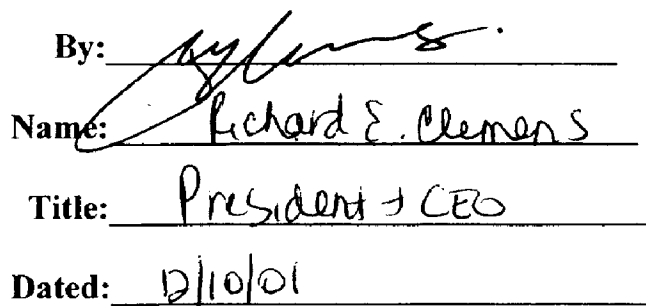 By:
Name: Richard E. Clemens
Title: President + CEO
Dated: 12/10/01